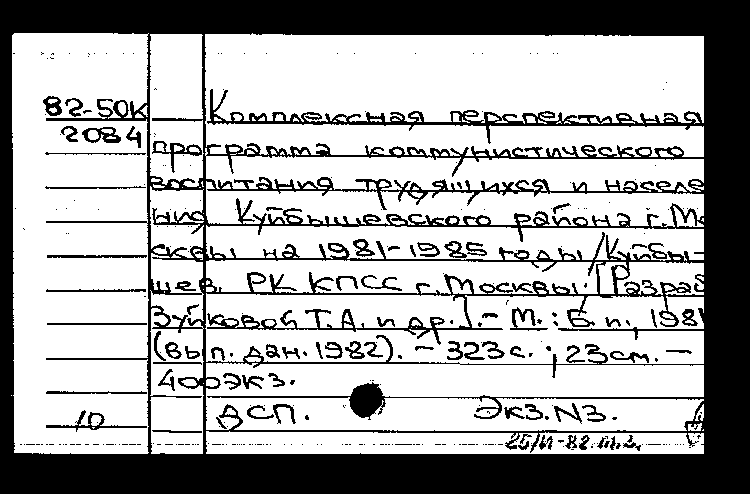 82-50К Комплексная перспективная
2084
программа коммунистического
воспитания трудящихся и населе
ния Куйбышевского района г. Мо
сквы на 1981-1985 годы /Куйбы-
шев. РК КПСС г. Москвы. [Разраб
Зуйковой Т.А. и др.].- М.: Б. и., 198
(вып. дан. 1982). - 323 с. ; 23 см. -
400 экз.
10 ДСП. Экз. N3.